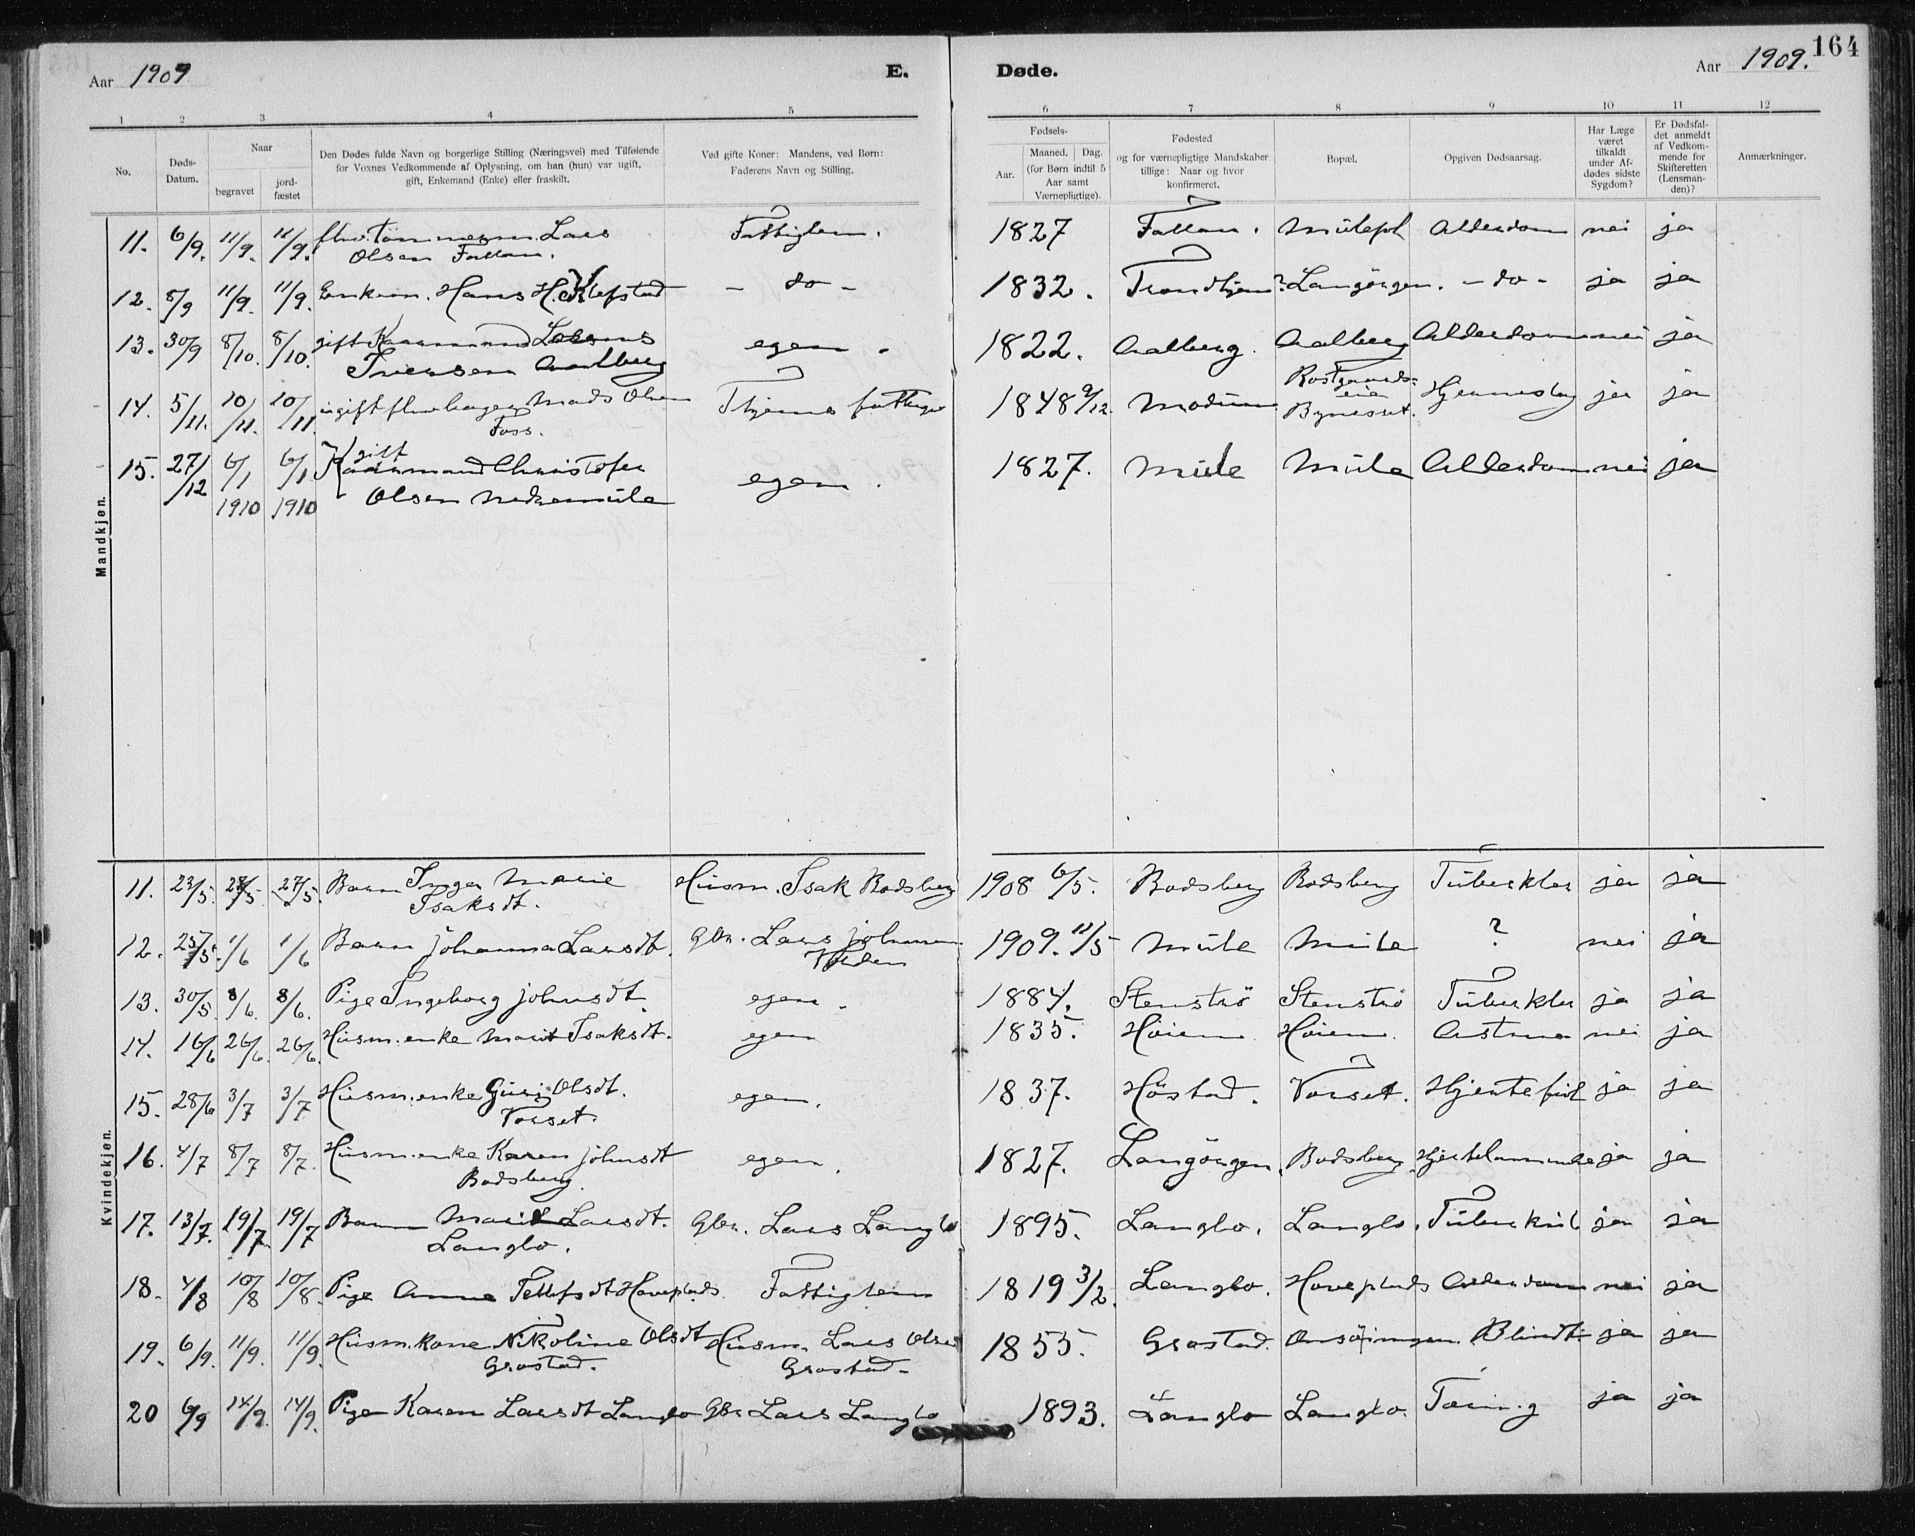 164
Aar 1909 E. Døde. Aar 1909.
1 2 3 4 5 6 7 8 9 10 11 12
No.
Døds-
Datum.
Naar
begravet
jord-
fæstet
Den Dødes fulde Navn og borgerlige Stilling (Næringsvei) med Tilføiende
for Voxnes Vedkommende af Oplysning, om han (hun) var ugift,
gift, Enkemand (Enke) eller fraskilt.
Ved gifte Koner: Mandens, ved Børn:
Faderens Navn og Stilling.
Fødsels-
Aar.
Maaned. Dag.
(for Børn indtil 5
Aar samt
Værnepligtige).
Fødested
og for værnepligtige Mandskaber
tillige: Naar og hvor
konfirmeret.
Bopæl.
Opgiven Dødsaarsag.
Har Læge
været
tilkaldt
under Af-
dødes sidste
Sygdom?
Er Dødsfal-
det anmeldt
af Vedkom-
mende for
Skifteretten
(Lensman-
den)?
Anmærkninger.
Mandkjøn.
11. 6/9. 11/9. 11/9. Lars Fattiglem. 1827 Fallan. Alderdom nei ja
Olsen Fallan.
12. 8/9 11/9. 11/9. Enkem. Hans H. Klefstad - do - 1832. Trondhjem? Langörgen. - do - ja ja
13. 30/9 8/10. 8/10. gift Kaarmand egen. 1822. Aalberg. Aalberg Alderdom nei ja
Iversen Aalberg
14. 5/11. 10/11. 10/11. ugift Mads Olsen 1848 9/12. Modum ja ja
Foss. Bynesset.
15. 27/12 6/1 6/1 gift
Kaarmand Christofer egen. 1827. Mule Mule Alderdom nei ja
1910 1910 Olsen Nedremule
Kvindekjøn.
11. 23/5. 27/5. 27/5. Barn Inga Marie Husm. Isak Bodsberg 1908 6/5. Bodsberg Bodsberg Tuberkler ja ja
Isaksdt.
12. 25/5. 1/6 1/6 Barn Johanna Larsdt. Gbr. Lars Johnsen 1909. 11/5 Mule Mule ? nei ja
13. 30/5. 8/6. 8/6. Pige Ingeborg Johnsdt. egen. 1884. Stenströ Stenströ Tuberkler ja ja
14. 16/6 26/6. 26/6. Husm. enke Marit Isaksdt. egen 1835. Höiem Höiem. Astma nei ja
15. 28/6 3/7 3/7. Husm. enke Guri Olsdt. egen. 1837. Höstad. Vorset. Hjertefeil ja ja
Vorset.
16. 4/7 8/7 8/7. Husm. enke Karen Johnsdt egen. 1827. Langörgen. Bodsberg. Hjertelammelse ja ja
Bodsberg.
17. 13/7. 19/7 19/7 Barn Marit Larsdt. Gbr. Lars Langlo 1895. Langlo. Langlo. Tuberkul ja ja
Langlo.
18. 4/8 10/8 10/8. Pige Anne Tellefsdt Haveplads. Fattiglem 1819 3/2. Langlo. Haveplads Alderdom nei ja
19. 6/9. 11/9. 11/9. Husm. kone Nikoline Olsdt Husm. Lars Olsen 1855. Grostad. Blindt ja ja
Grostad. Grostad.
20 6/9 14/9. 14/9. Pige Karen Larsdt Langlo Gbr Lars Langlo 1893. Langlo Langlo. Tæring ja ja